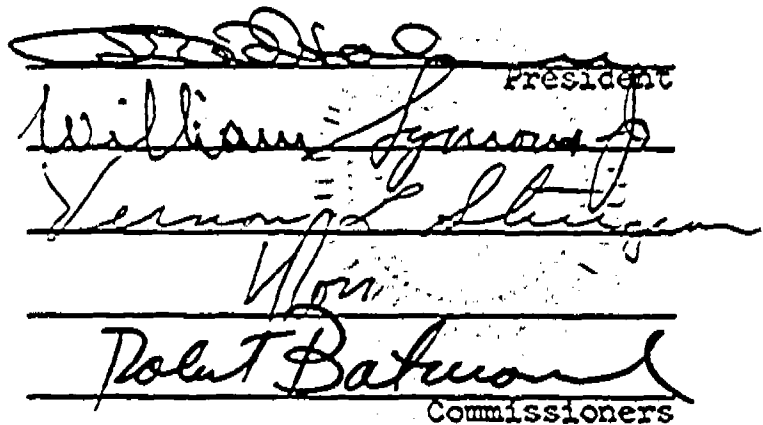 President
William Symons Jr
Vernon L Sturgeon
Moran
Robert Batinovich
Commissioners